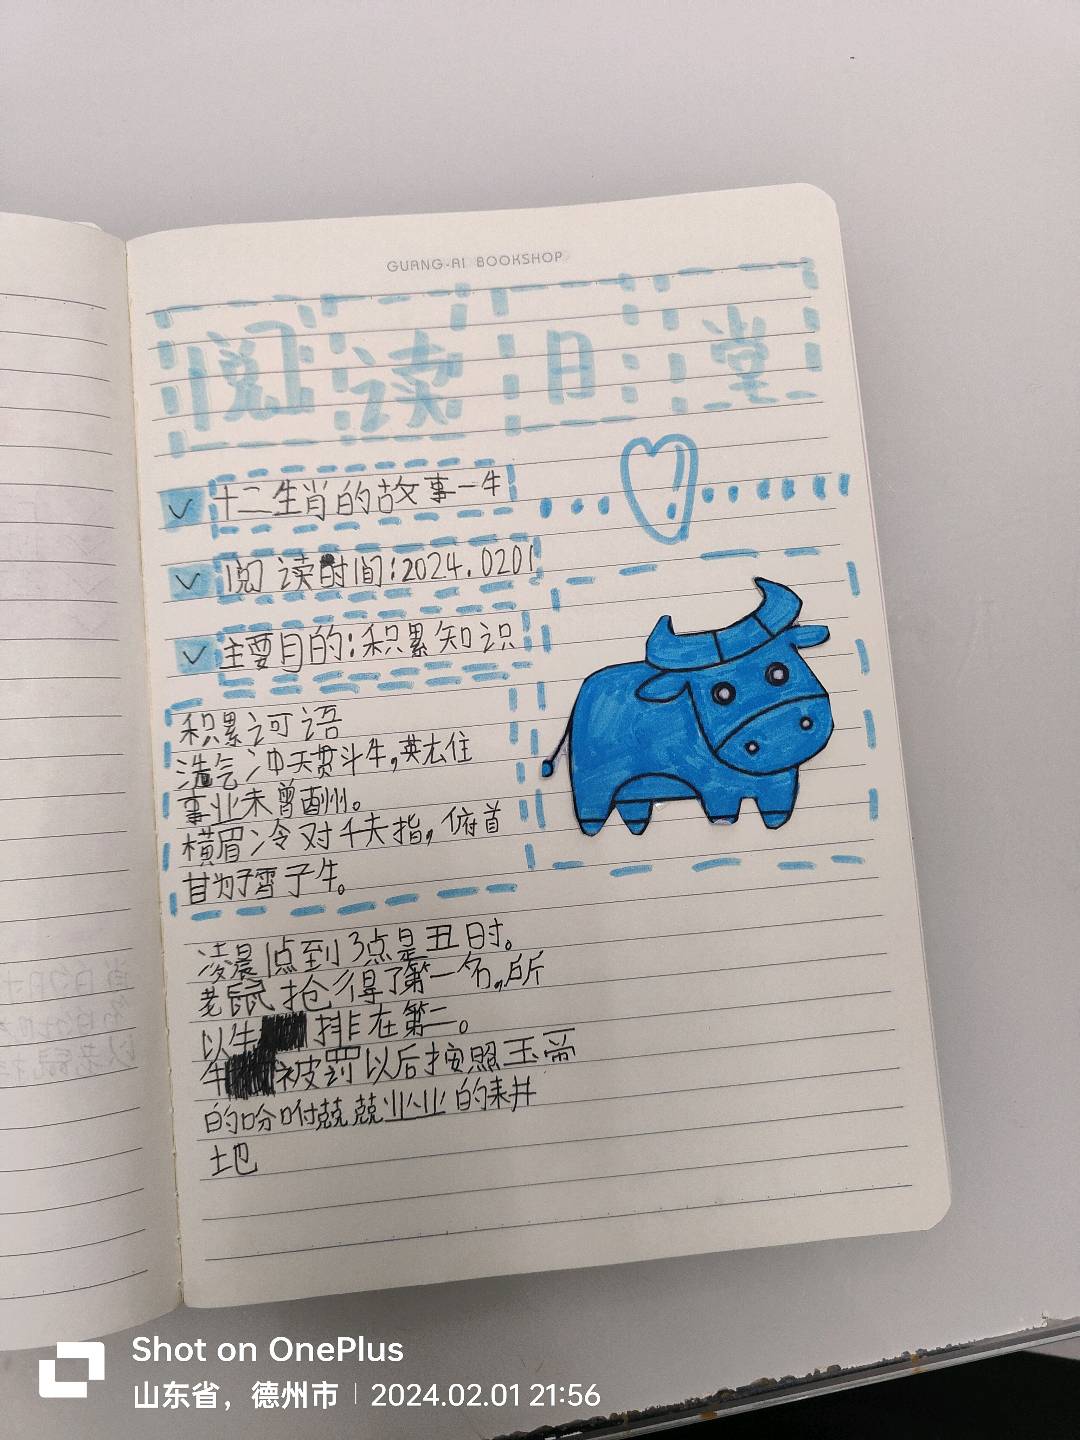 GUANG-AI BOOKSHOP
阅读日堂
十二生肖的故事一牛
阅读时间:2024.0201
主要目的:积累知识
积累词语
浩气冲天贯斗牛,英大住
事业未曾酬州。
横眉冷对千夫指,俯首
甘为孺子牛。
凌晨1点到3点是丑时。
老鼠抢得了第一名,所
以牛排在第二。
牛被罚以后按照玉帝
的吩咐兢兢业业的耕
地
Shot on OnePlus
山东省，德州市 | 2024.02.01 21:56